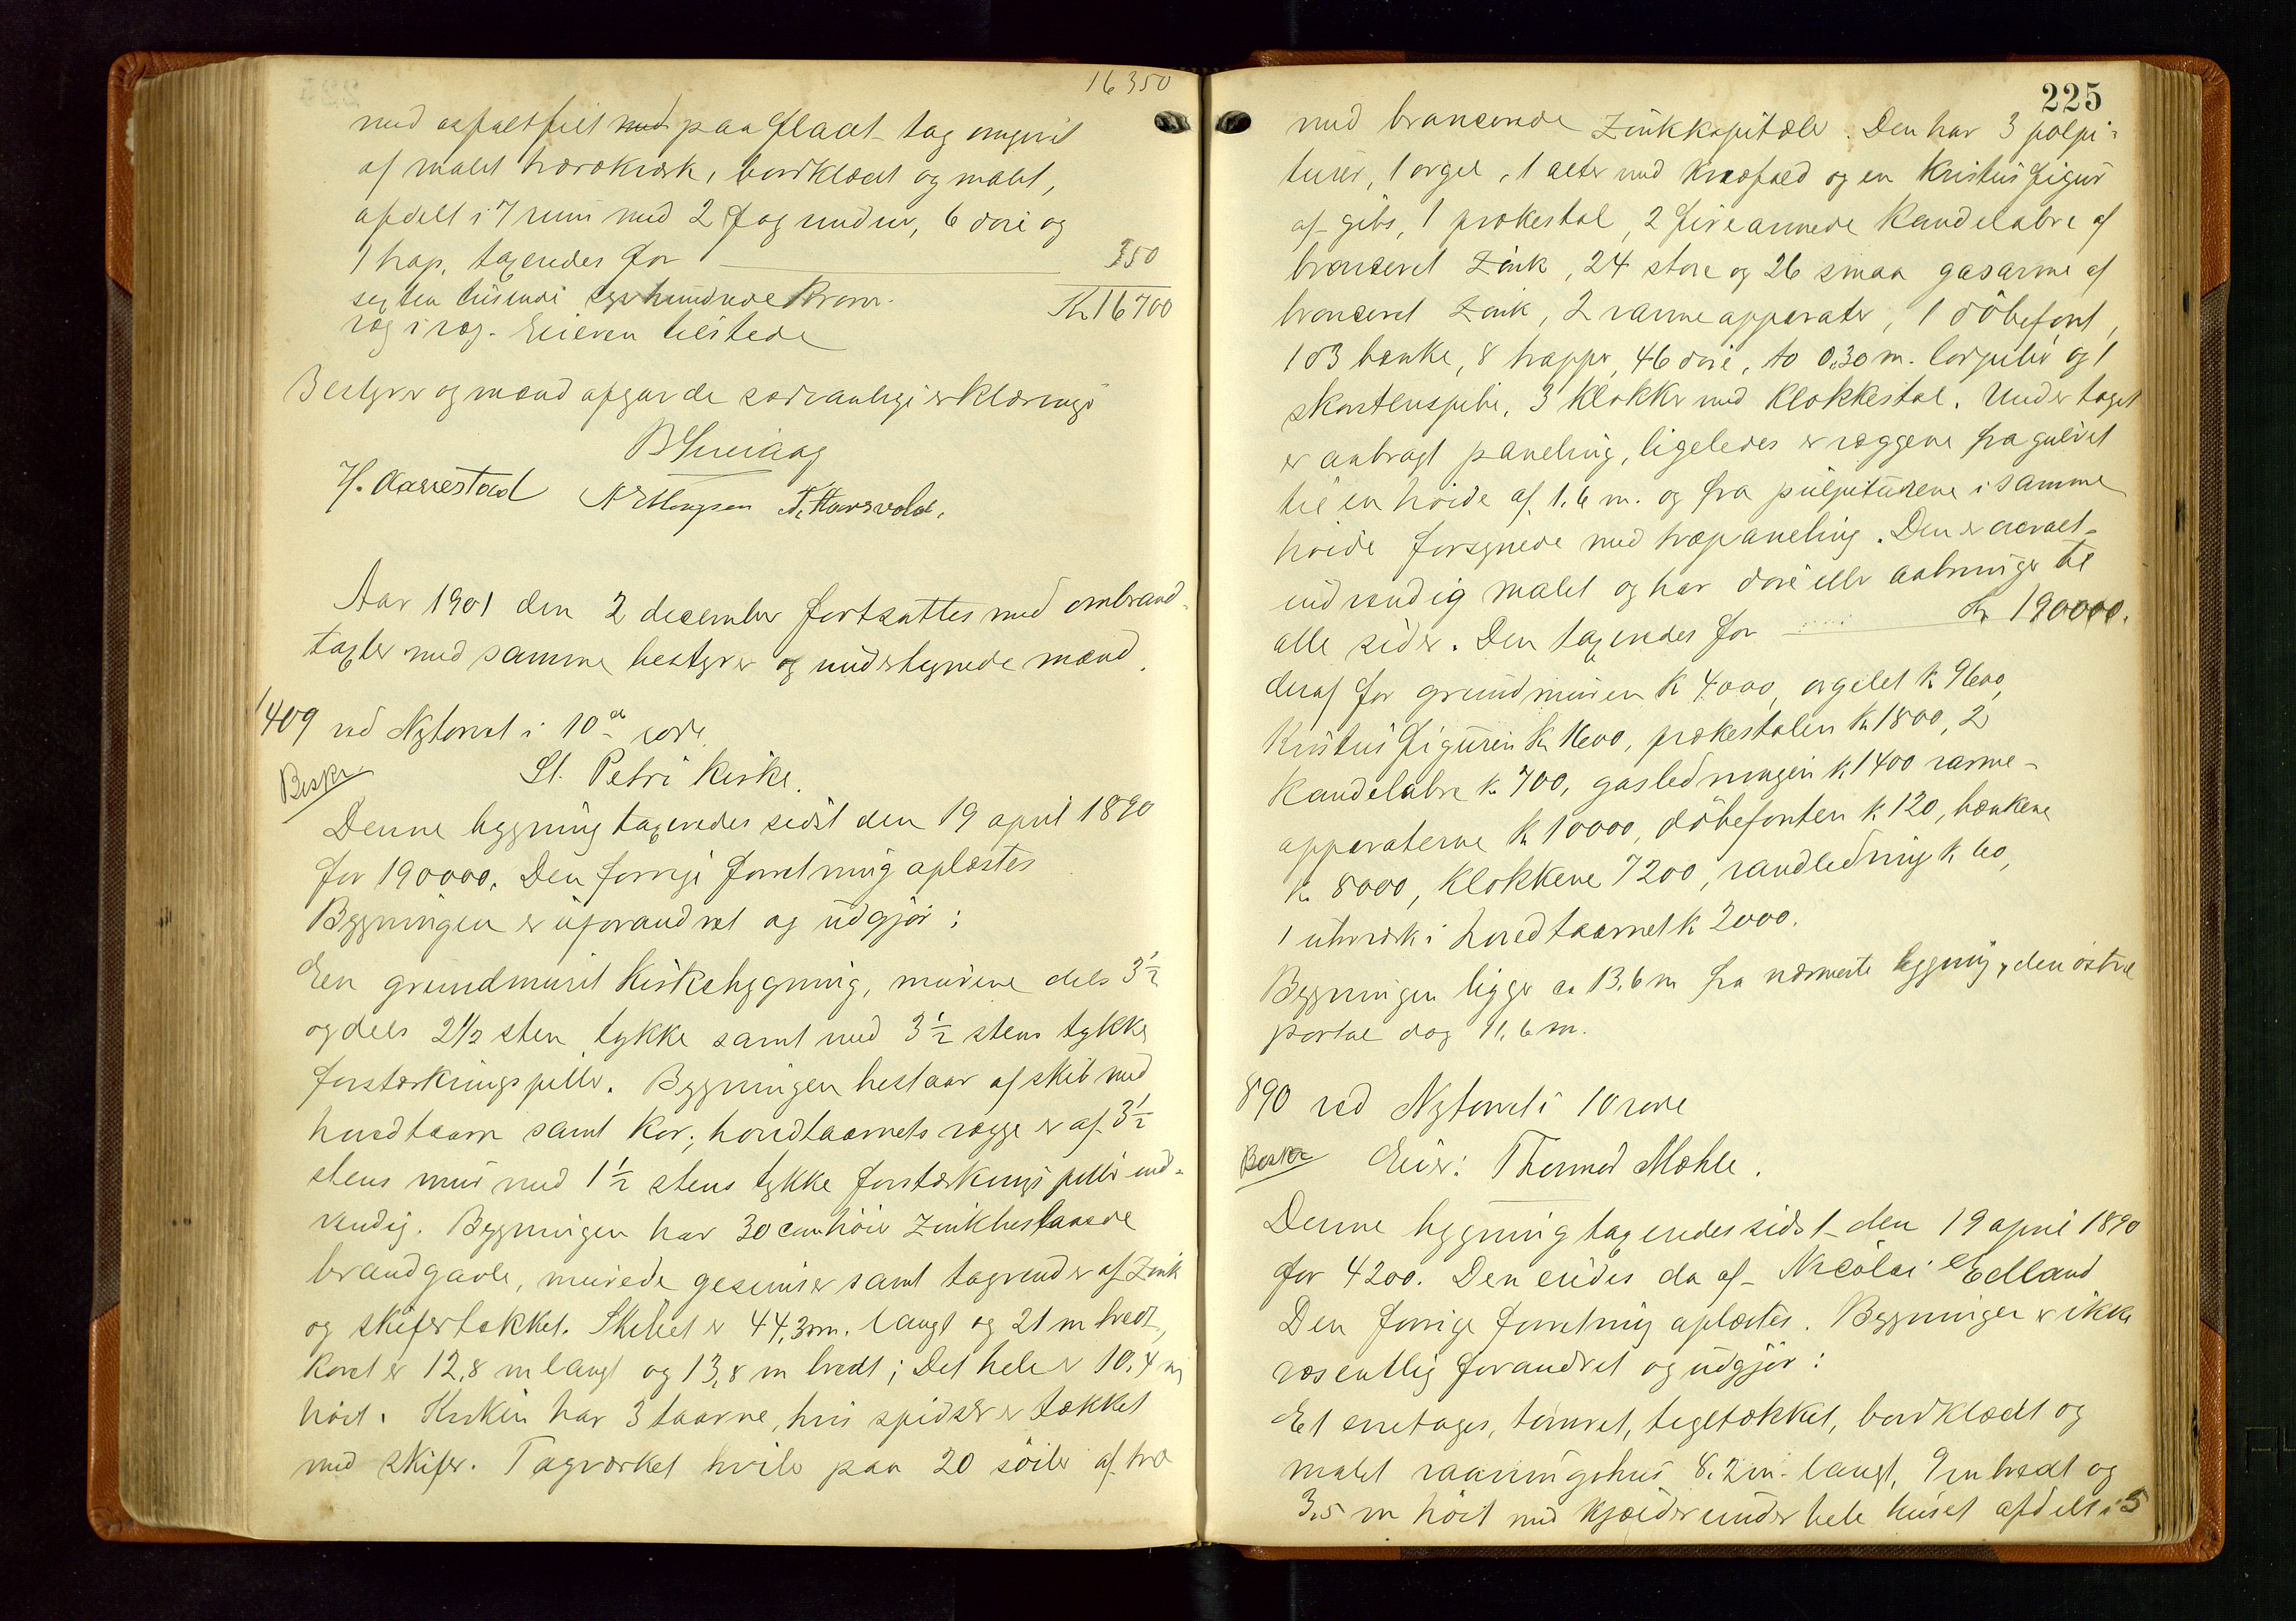 16350
med asfaltfilt med paa fladt tag omgivet
af malet træværk, bordklædt og malet,
afdelt i 7 rum med 2 fag vinduer, 6 döre og
1 trap. taxeredes for 350
sexten tusende syv hundrede Kroner. Kr 16700
væg i væg. Eieren tilstede
Bestyrer og mænd afgav de sædvanlige erklæringer
H. Aarrestad
Aar 1901 den 2 december fortsattes med ombrand-
taxter med samme bestyrer og undertegnede mænd.
1409 ved Nytorvet i 10de rode
Beskr. St. Petri Kirke.
Denne bygning taxeredes sidst den 19 april 1890
for 190000. Den forrige forretning oplæstes
Bygningen er uforandret og udgjör:
Een grundmuret Kirkebygning, murene dels 3½
og dels 2½ sten tykke samt med 3½ stens tykke
forstærkningspiller. Bygningen bestaar af skib med
hovedtaarn samt kor; hovedtaarnets vægge er af 3½
stens mur med 1½ stens tykke forstærkningspiller ind-
vendig. Bygningen har 30 cm höie Zinkbeslaaede
brandgavle, murede gesimser samt tagrender af Zink
og skifertækket. Skibet er 44,3 m. langt og 21 m bredt,
Koret er 12,8 m langt og 13,8 m bredt; Det hele er 10,4 m
höit. Kirken har 3 taarne, hvis spidser er tækket
med skifer. Tagværket hviler paa 20 söiler af træ
225
med broncerede Zinkkapitæler. Den har 3 pulpi-
turer, 1 orgel, 1 alter med knæfald og en Kristus figur
af gibs, 1 prækestol, 2 firearmede Kandelabre af
bronceret Zink, 24 store og 26 smaa gasarme af
bronceret Zink, 2 varmeapparater, 1 döbefont,
103 bænke, 8 trapper, 46 döre, to 0,30 m. luftpiber og 1
skorstenspibe, 3 klokker med klokkestol. Under taget
er anbragt paneling, ligeledes er væggene fra gulvet
til en höide af 1,6 m. og fra pulpiturerne i samme
höide forsynede med træpaneling. Den er overalt
indvendig malet og har döre eller aabninger til
alle sider. Den taxeredes for Kr 190000.
deraf for grundmuren K 4000, orgelet k 9600,
Kristus figuren K 1600, prækestolen K 1800, 2
Kandelabre k 700, gasledningen k 1400 varme-
apparaterne K 10000, döbefonten k 120, bænkene
k. 8000, klokkene 7200, vandledning k 60,
1 uhrværk i hovedtaarnet k 2000.
Bygningen ligger ca 13,6 m fra nærmeste bygning, den östre
portal dog 11,6 m.
890 ved Nytorvet i 10 rode
Beskr. Eier: Thormod Mæhle.
Denne bygning taxeredes sidst den 19 april 1890
for 4200. Den eiedes da af Nicolai Edland
Den forrige forretning oplæstes. Bygningen er ikke
væsentlig forandret og udgjör:
Et enetages, tömret, tegltækket, bordklædt og
malet vaaningshus 8,2 m. langt, 9 m bredt og
3,5 m höit med kjælder under hele huset afdelt i 5